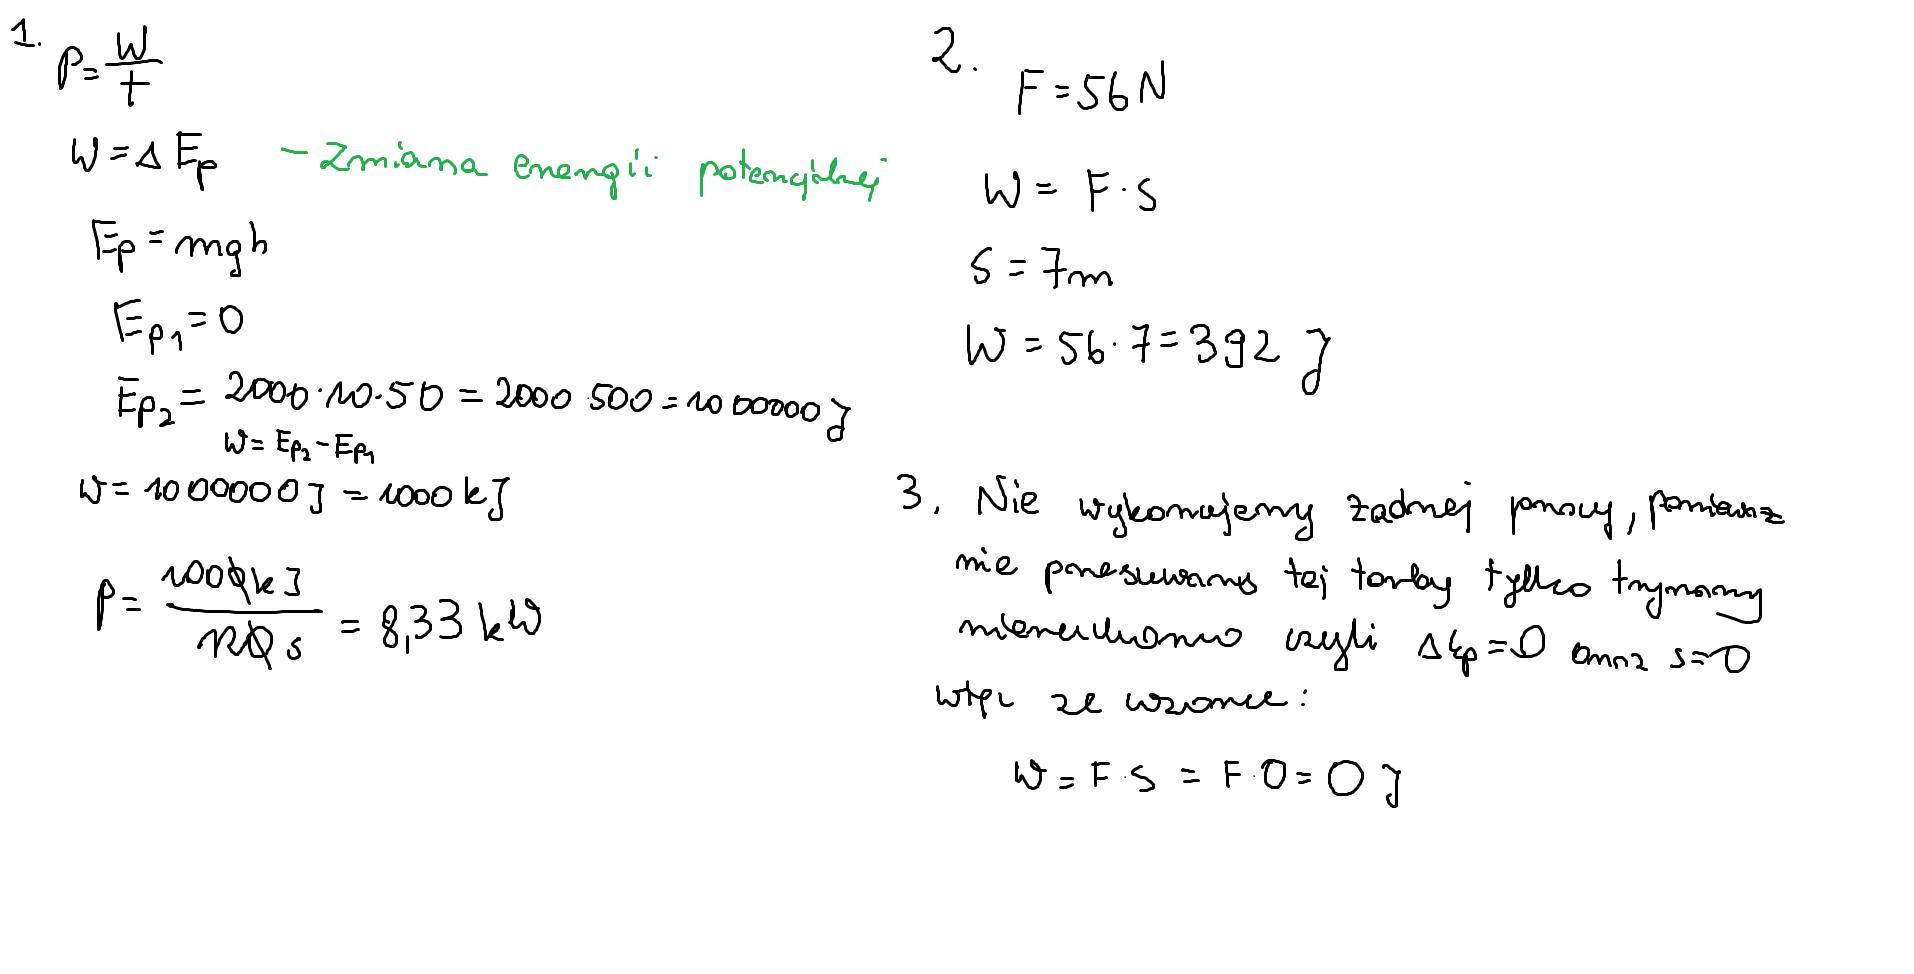 1.
P = W/t
W = Δ Ep - zmiana energii potencjalnej
Ep = mgh
Ep1 = 0
Ep2 = 2000·10·50 = 2000 500 = 1000000 J
W = Ep2 - Ep1
W = 1000000 J = 1000 kJ
P = 1000 kJ / 120 s = 8,33 kW
2.
F = 56 N
W = F·s
s = 7m
W = 56·7 = 392 J
3. Nie wykonujemy żadnej pracy, ponieważ
nie przesuwamy tej torby tylko trzymamy
nieruchomo czyli ΔEp = 0 oraz s = 0
więc ze wzoru:
W = F·s = F·0 = 0 J